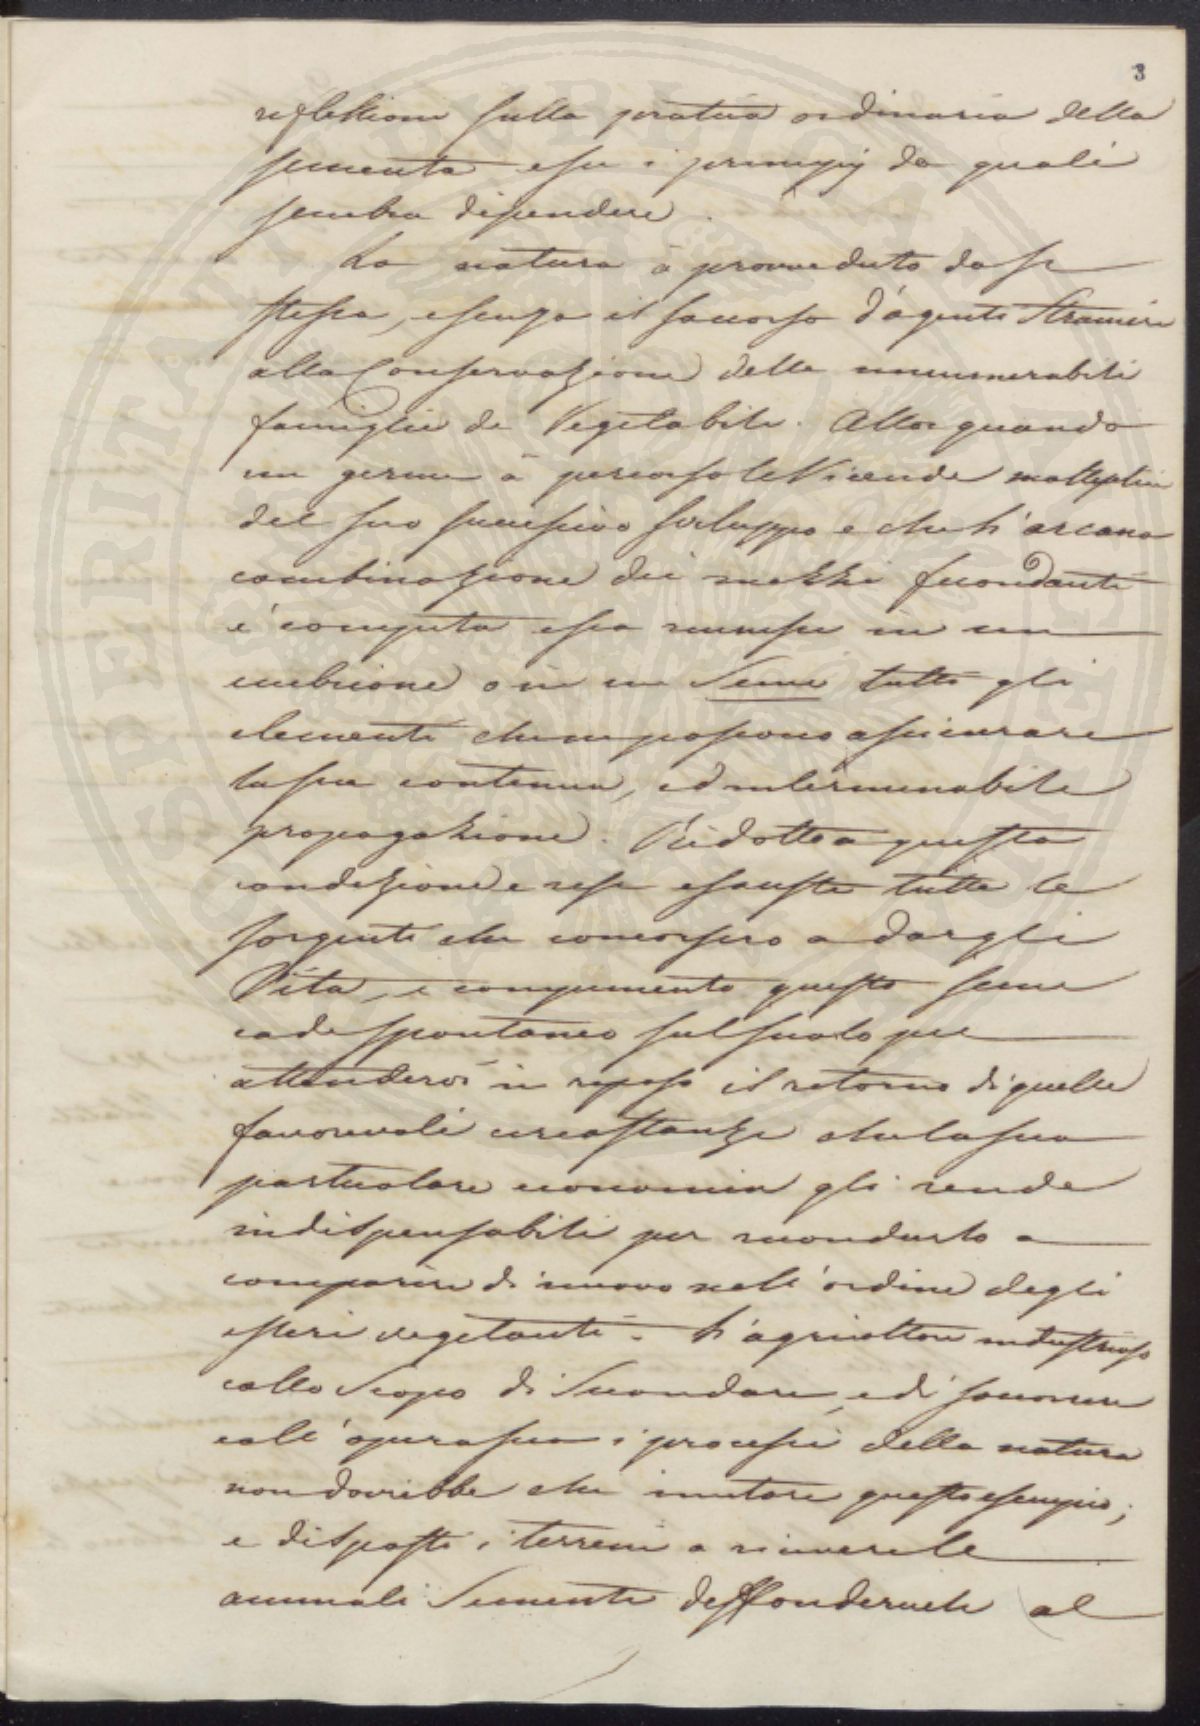 3
reflessioni sulla pratica ordinaria della
sementa e su i principj da quali
sembra dipendere.
La natura à provveduto da se
stessa, e senza il soccorso d'agenti stranieri
alla Conservazione delle innumerabili
famiglie de Vegetabili. Allor quando
un germe à percorso le Vicende molteplici
del suo successivo sviluppo e che l'arcana
combinazione dei mezzi fecondanti
è compiuta essa riunisce in un
embrione o in un Seme tutti gli
elementi che ne possono assicurare
la sua continua, ed interminabile
propagazione. Ridotto a questa
condizione e rese esauste tutte le
sorgenti che concorsero a dargli
Vita, e compimento questo seme
cade spontaneo sul suolo per
attendervi in riposo il ritorno di quelle
favorevoli circostanze che la sua
particolare economia gli rende
indispensabili per ricondurlo a
comparire di nuovo nell'ordine degli
esseri vegetanti. L'agricoltore industrioso
collo Scopo di Secondare, ed soccorrere
coll'opera sua i processi della natura
non dovrebbe che imitare questo esempio;
e disposti i terreni a ricevere le
annuali Sementi deffondervele al
SPERITAT PVBLICA